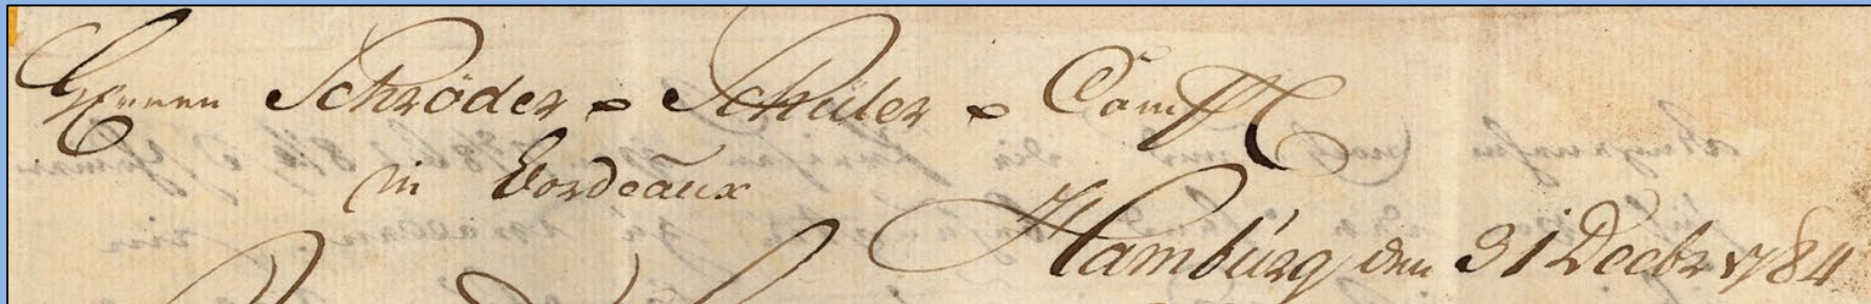 Herren Schröder = Schüler = Comp
in Bordeaux
Hamburg den 31 Decbr 1784